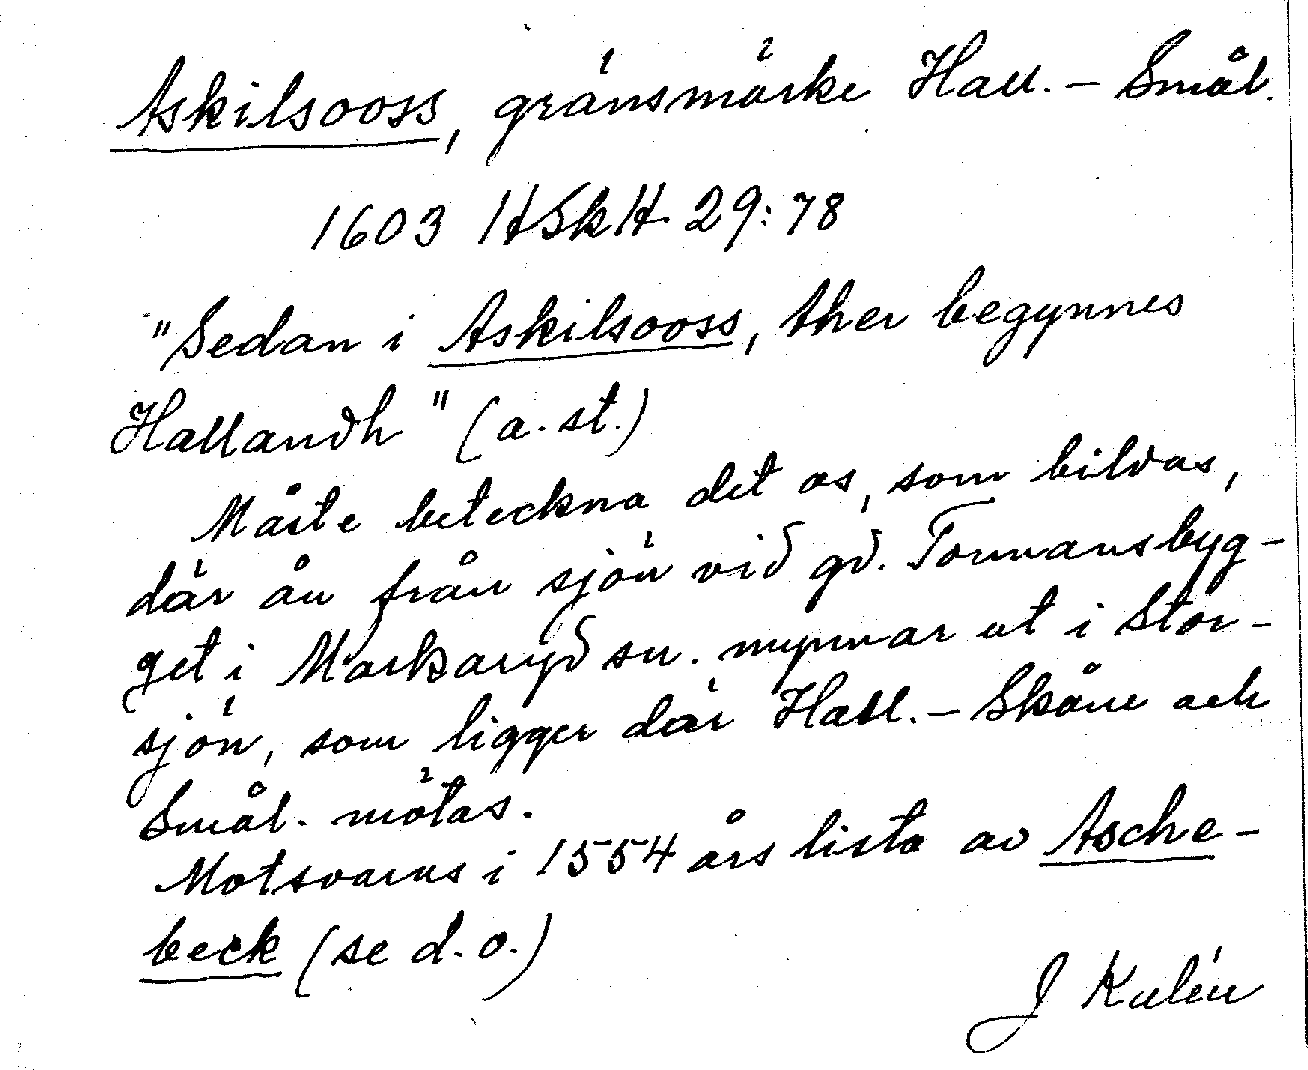 Askilsooss, gränsmärke Hall. - Smål.
1603 HSkH 29:78
"Sedan i Askilsooss, ther begynnes
Hallandh" (a. st.)
Måste beteckna det os, som bildas,
där ån från sjön vid gd. Tormansbyg-
get i Markaryd sn. mynnar ut i Stor-
sjön, som ligger där Hall. - Skåne och
Smål. mötas.
Motsvaras i 1554 års lista av Asche-
beck (se d. o.)
J Kalén